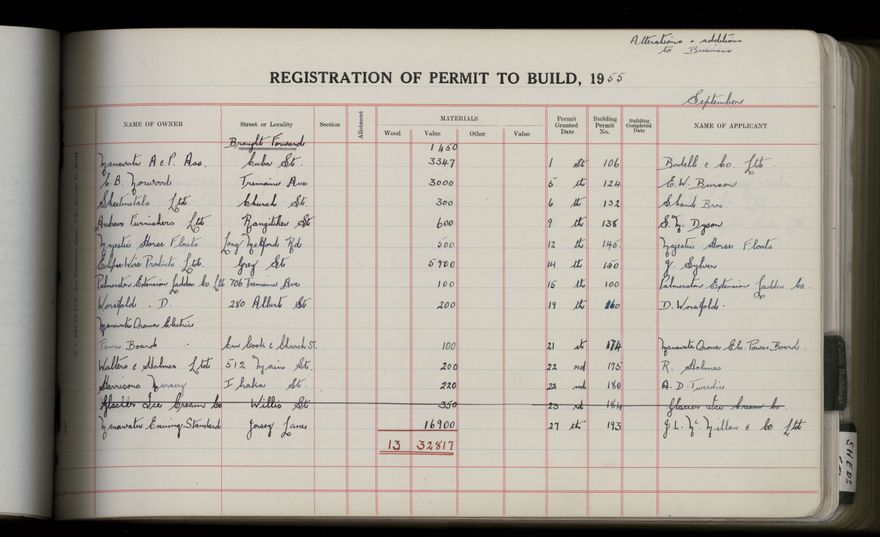 Alterations & additions
to Business
REGISTRATION OF PERMIT TO BUILD, 1955
September
NAME OF OWNER Street or Locality Section Allotment MATERIALS Wood Value Other Value Permit Granted Date Building Permit No. Building Completed Date NAME OF APPLICANT
Brought Forward 1450
Manawatu A & P. Ass. Cuba St. 3347 1 st 106 Bodell & Co Ltd.
C. B. Norwood Tremaine Ave 3000 5 th 124 E. W. Burson
Sheetmetals Ltd Church St 300 6 th 132 Shand Bros.
Andrews Furnishers Ltd Rangitikei St 600 9 th 138 S. M. Dyson
Majestic Horse Floats Long Melford Rd 500 12 th 145 Majestic Horse Floats
Eclipse Wire Products Ltd. Grey St 5900 14 th 150 J. Sylver
Palmerston Extension Ladder Co Ltd 706 Tremaine Ave 100 15 th 100 Palmerston Extension Ladder Co.
Worsfold . D. 280 Albert St 200 19 th 160 D. Worsfold.
Manawatu Oroua Electric
Power Board Cnr Cook & Church St. 100 21 st 174 Manawatu Oroua Elec Power Board.
Walters & Holmes Ltd 512 Main St. 200 22 nd 175 R. Holmes
Harrisons Nursery Ihaka St. 220 22 nd 180 A. D. Tweedie
Glacier Ice Cream Co Willis St 350 23 rd 184 Glacier Ice Cream Co.
Manawatu Evening Standard Jersey Lane 16900 27 th 193 J. L. Mc. Millan & Co Ltd
13 32817
SHEDS